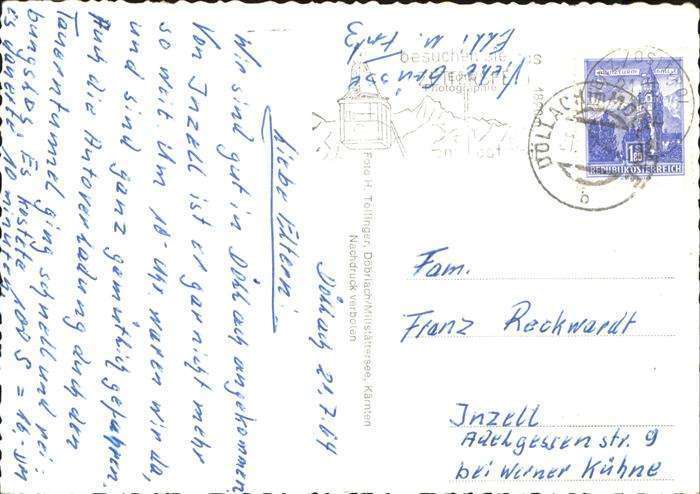 Döllach 21.7.64
Liebe Eltern!
Wir sind gut in Döllach angekommen
Von Inzell ist es gar nicht mehr
so weit. Um 10-Uhr waren wir da,
und sind ganz gemütlich gefahren.
Auch die Autoverladung durch den
Tauerntunnel ging schnell und rei-
bungslos. Es kostete 100 S = 16-DM
Es dauert 10 minuten
Viele Grüsse
Fritz
Foto H. Tollinger, Döbriach/Millstättersee, Kärnten
Nachdruck verboten
besuchen Sie
DÖLLACH
b
1.80
REPUBLIK ÖSTERREICH
Fam.
Franz Reckwardt
Inzell
Adelgessenstr. 9
bei Werner Kühne